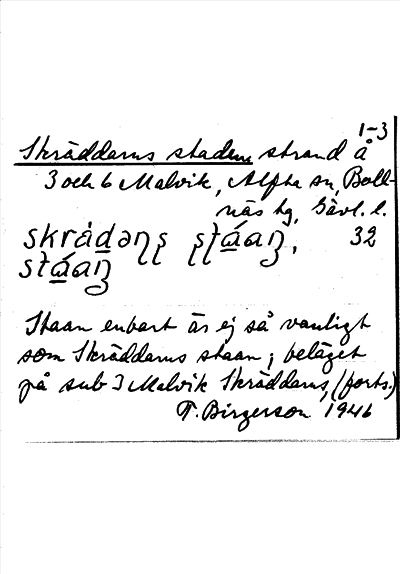 1-3
Skräddarns staden strand å
3 och 6 Malvik, Alfta sn, Boll-
näs hg, Gävl. l.
skrädəɳʂ ʂʈa̲aŋ, 32
sta̲aŋ
Staan enbart är ej så vanligt
som Skräddarns staan; beläget
på sub 3 Malvik Skräddarns, (forts.)
T. Birgerson 1946